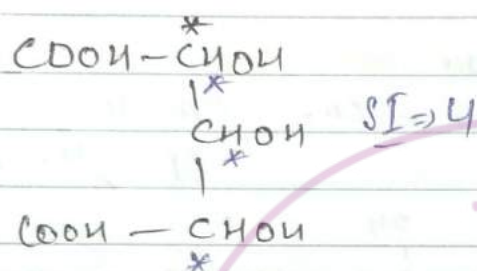 *
COOH - CHOH
| *
CHOH SI => 4
| *
COOH - CHOH
*